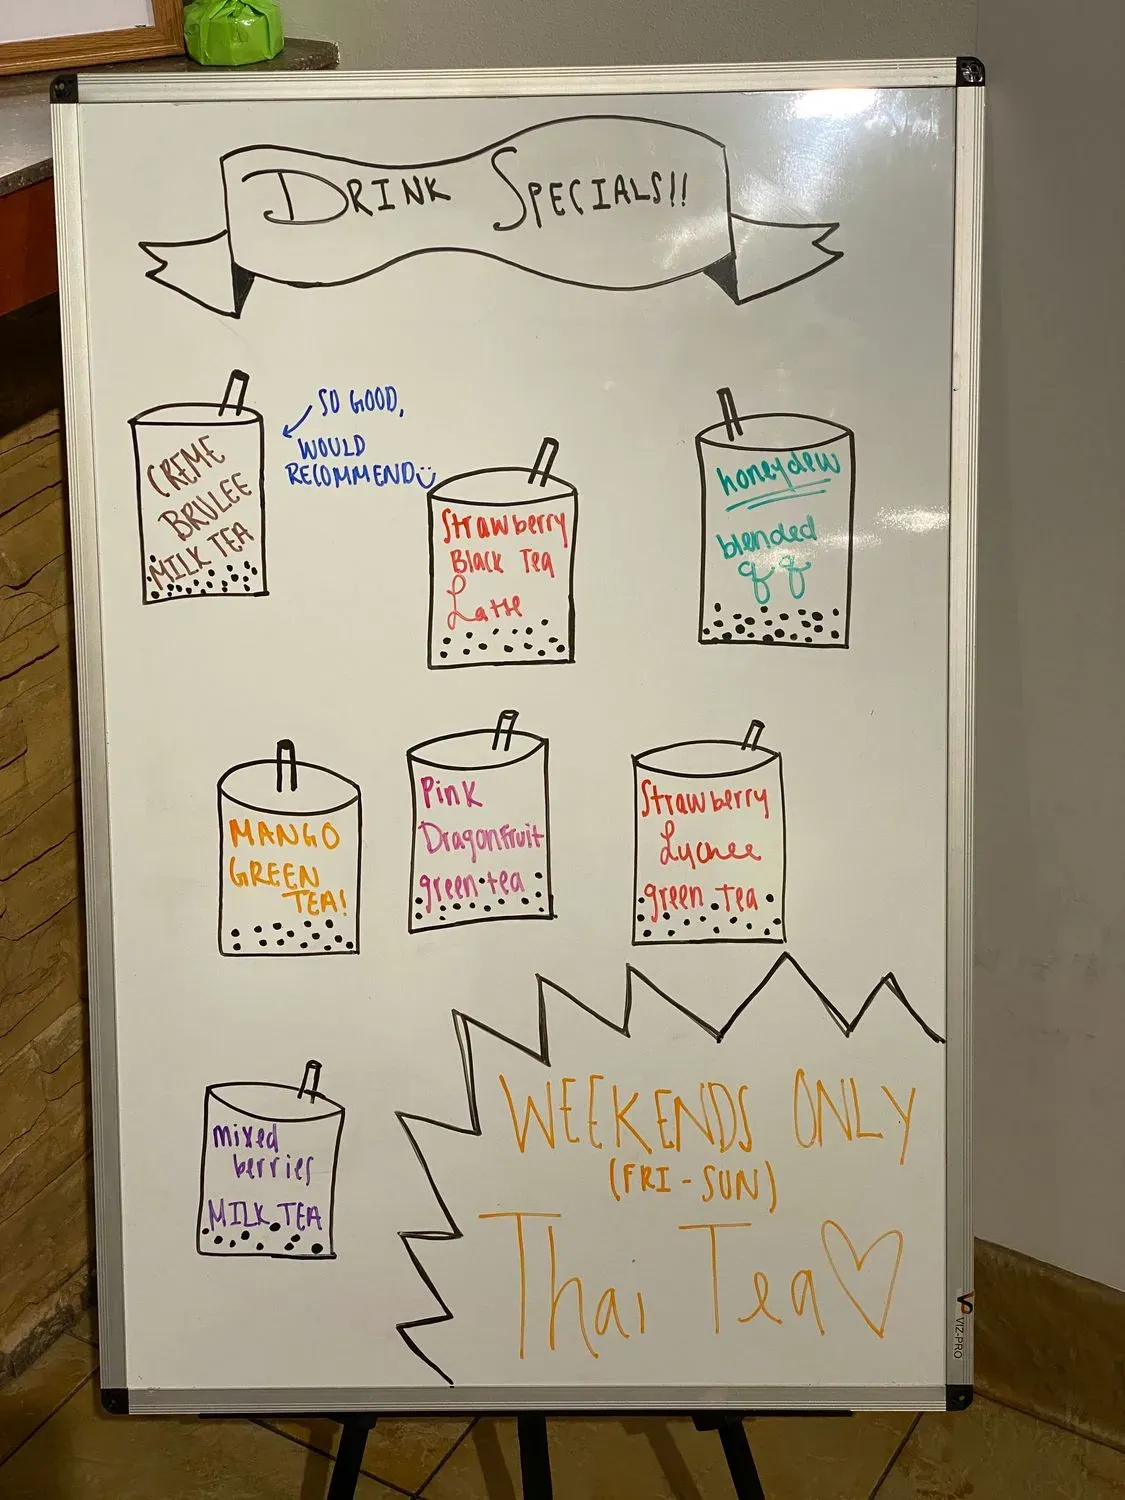 DRINK SPECIALS!!
CREME
BRULEE
MILK TEA
SO GOOD,
WOULD
RECOMMEND
Strawberry
Black Tea
Latte
honeydew
blended
MANGO
GREEN
TEA!
Pink
Dragonfruit
green tea
Strawberry
Lychee
green tea
mixed
berries
MILK TEA
WEEKENDS ONLY
(FRI - SUN)
Thai Tea
VIZ-PRO